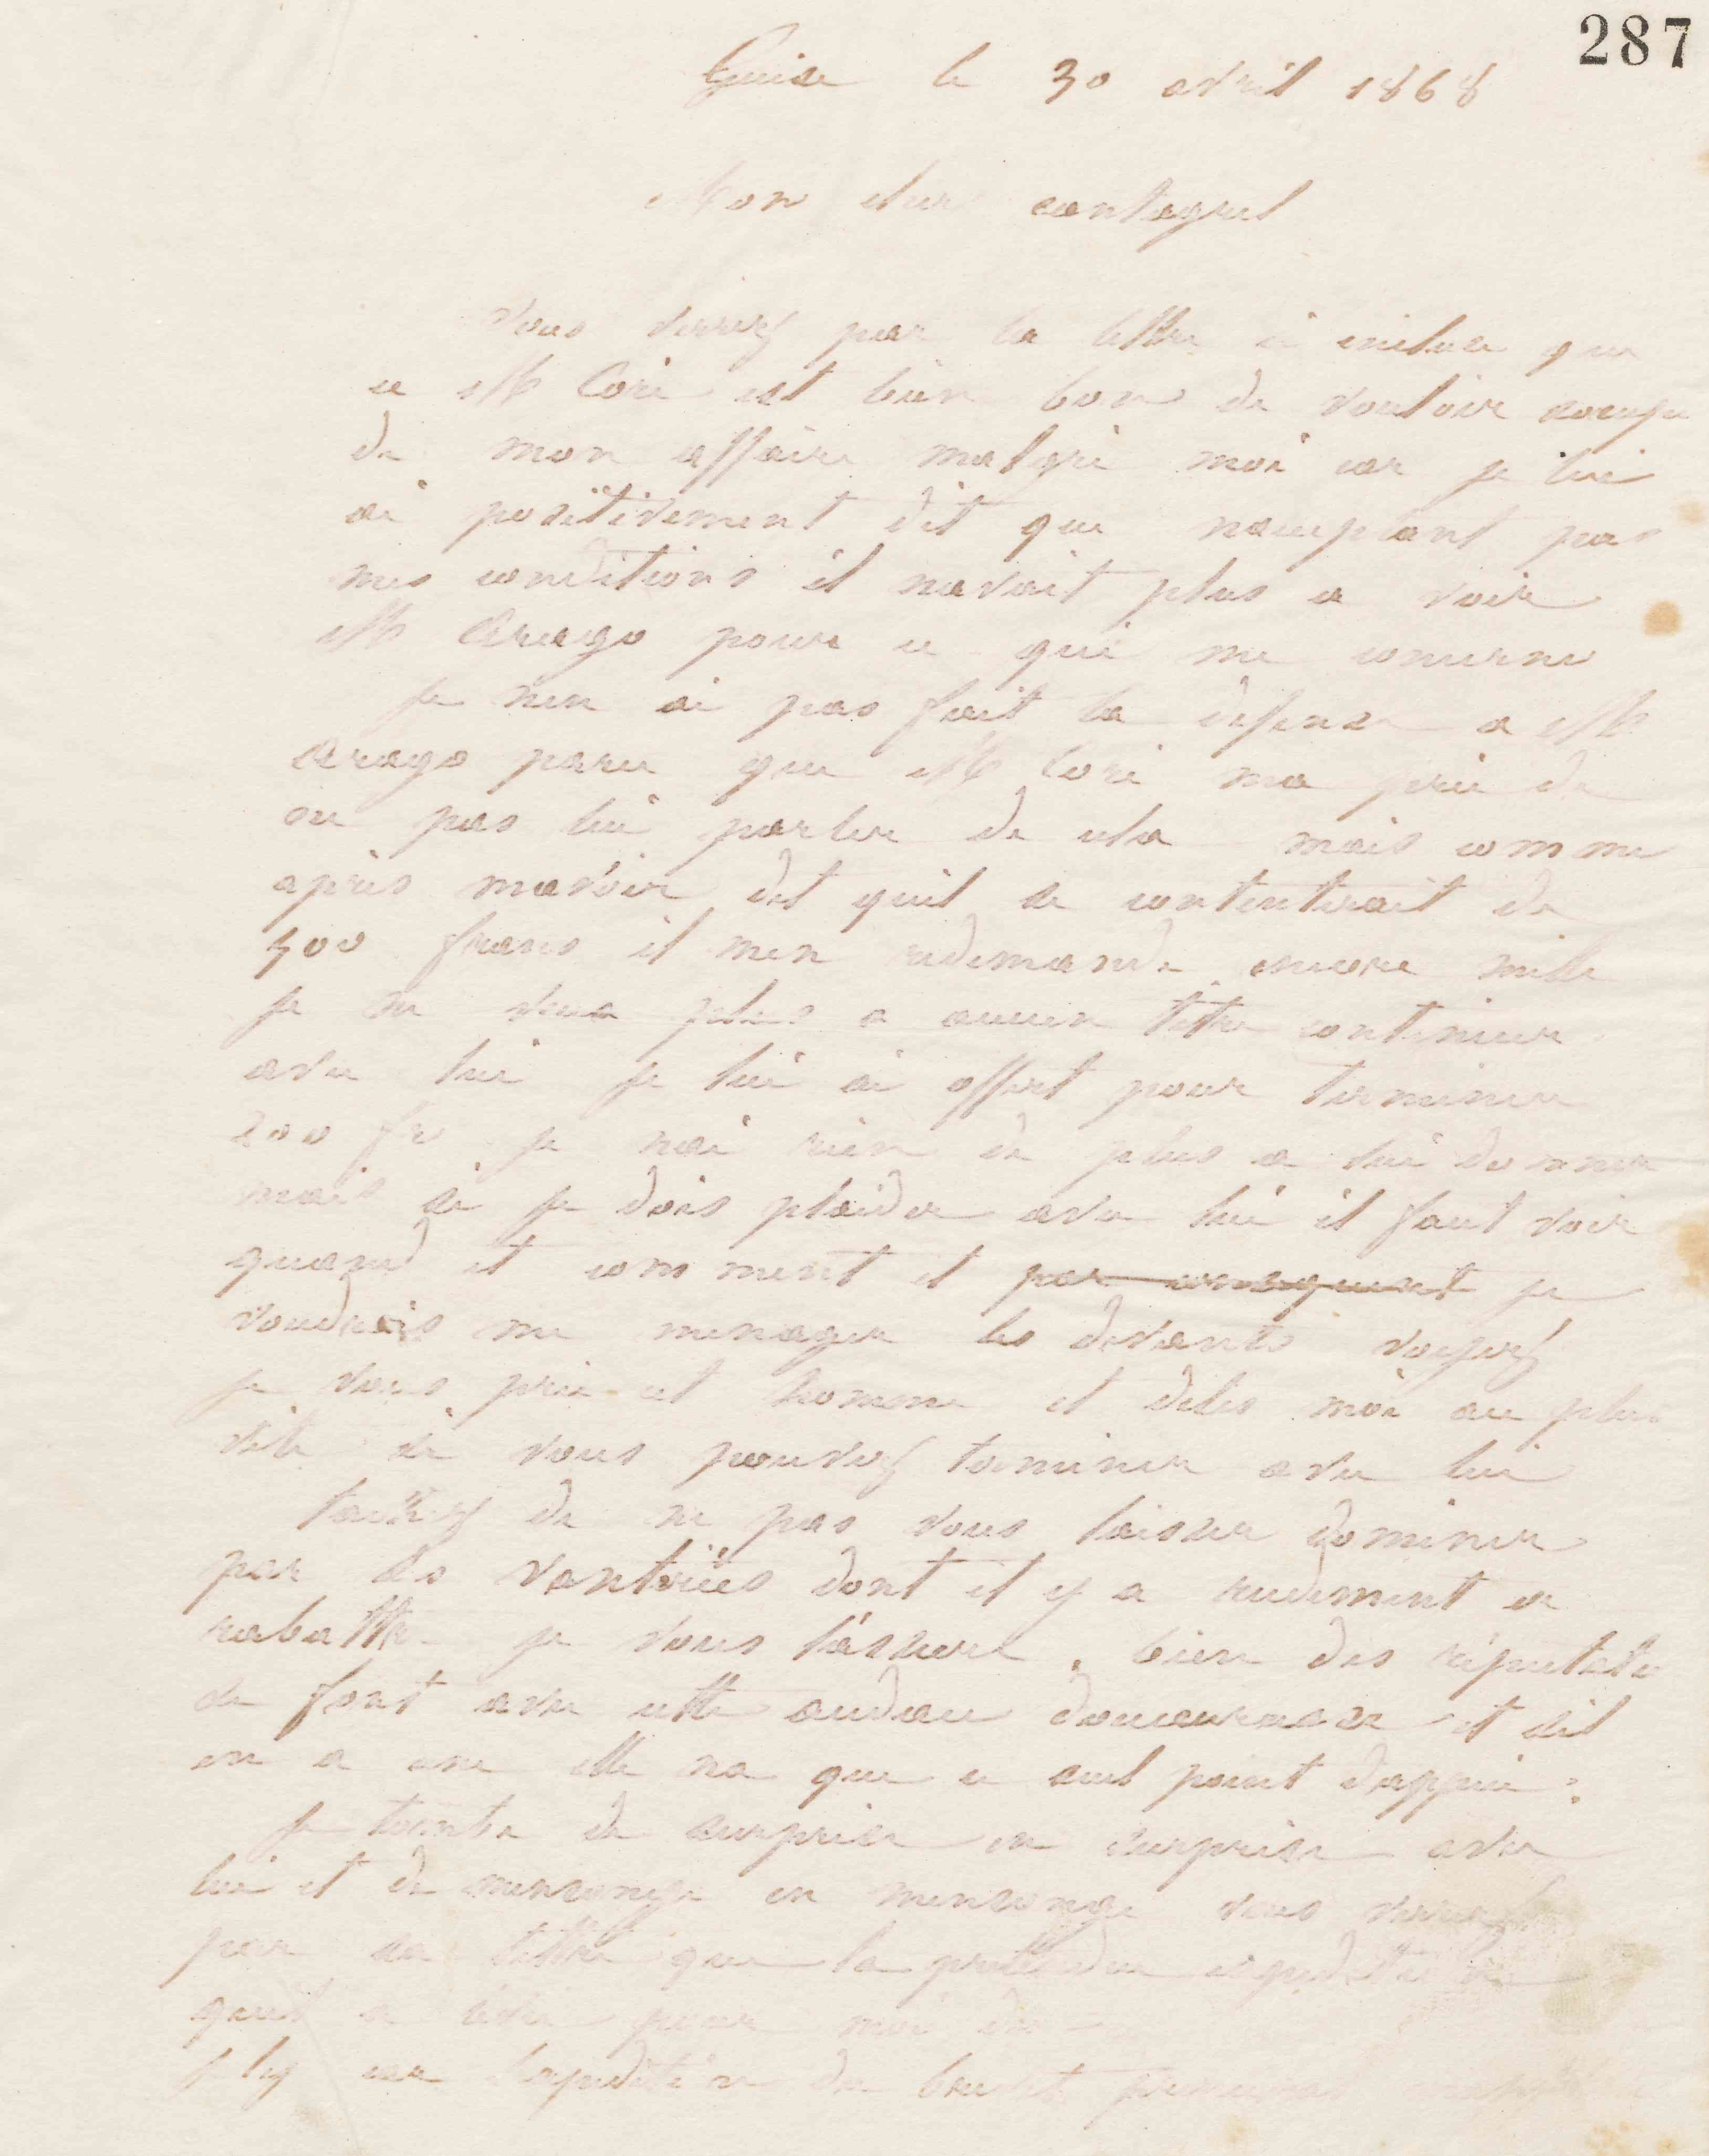 287
Guise le 30 avril 1868
Mon cher cantagrel
Vous verrez par la lettre ci incluse que
ce M Coré est bien bon de vouloir
de mon affaire malgré moi car je lui
ai positivement dit que naceptant pas
mes conditions il navait plus a voir
M Arago pour ce qui me concerne
je nen ai pas fait la defense a M
Arago parce que M Coré ma prié de
ne pas lui parler de cela mais comme
après mavoir dit quil se contenterait de
300 francs il men redemande encore mille
je ne veux plus a aucun titre continuer
avec lui je lui ai offert pour terminer
200 fr je nai rien de plus a lui donner
mais si je dois plaider avec lui il faut voir
quand et comment et par consequent je
voudrais me menager les devants voyez
je vous prie cet homme et dites moi au plus
vite si vous pouvez terminer avec lui
tachez de ne pas vous laisser dominer
par des vanteries dont il y a rudement a
rabattre je vous lassure. bien des
se font avec cette audace et sil
en a une elle na que ce seul point dappui.
je tombe de surprise en surprise avec
lui et de mensonge en mensonge vous verrez
par sa lettre que la pretendue
quil a pour moi
car lexpedition de